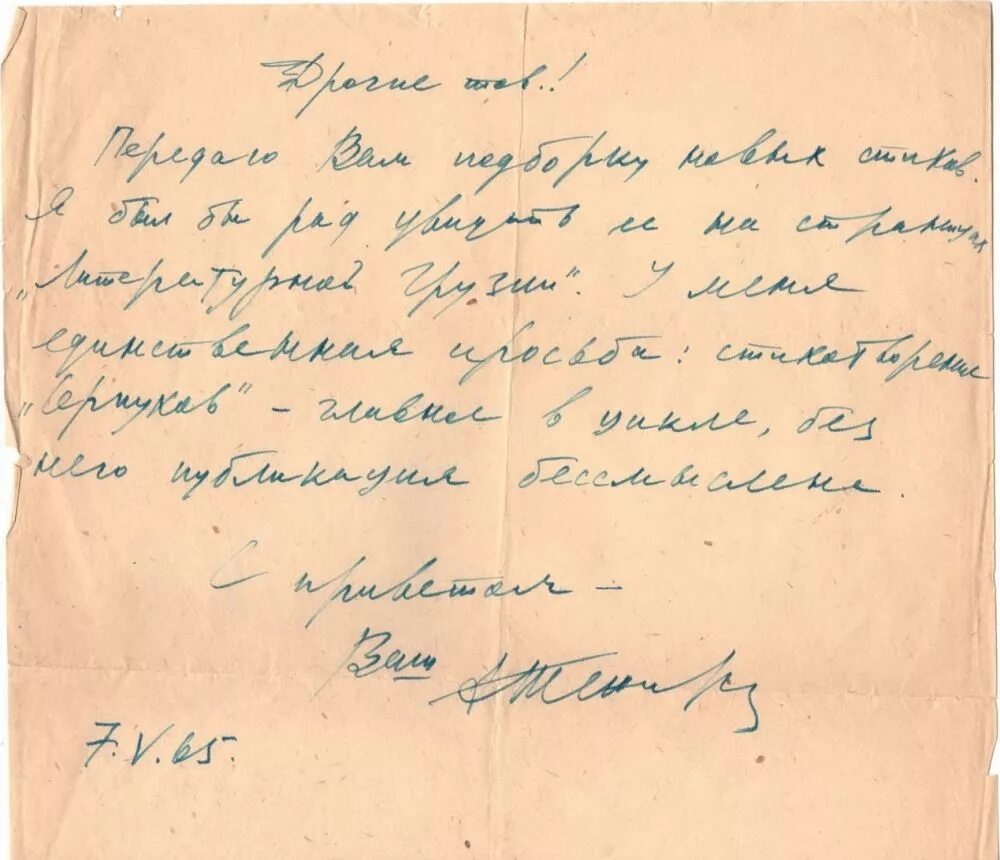 Дрогие тов.!
Передаю Вам подборку новых стихов.
Я был бы рад увидеть ее на страницах
„Литературной Грузии“. У меня
единственная просьба: стихотворение
„Серпухов“ – главное в цикле, без
него публикация бессмысленна.
С приветом –
Ваш
7.V.65.